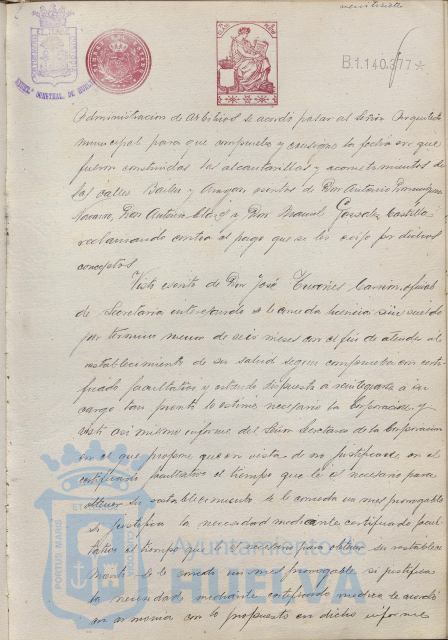 B.1.140.377*
Administracion de Arbitrios se acordó pasar al Señor Arquitecto
municipal para que compruebe y consigne la fecha en que
fueron construidas las alcantarillas y acometimientos de
las calles Bailen y Aragon, escritos de Don Antonio
Navarro, Don Antonio y Don Manuel Gonzalez Castilla
reclamando contra el pago que se les exije por dichos
conceptos
Visto escrito de Don José Carrion, oficial
de Secretaria interesando se le conceda licencia sin sueldo
por termino menor de seis meses con el fin de atender al
restablecimiento de su salud segun comprueba con certi-
ficado facultativo y estando dispuesto a reintegrarse a su
cargo tan pronto lo estime necesario la Corporacion, y
visto asi mismo informe del Señor Secretario de la Corporacion
en el que propone que en vista de no justificarse en el
certificado facultativo el tiempo que le es necesario para
obtener su restablecimiento se le conceda un mes prorrogable
si justifica la necesidad mediante certificado facul-
tativo el tiempo que le es necesario para obtener su restableci-
miento se le conceda un mes prorrogable si justifica
la necesidad mediante certificado medico se acordó
en armonia con lo propuesto en dicho informe
PORTUS MARIS
ET TERRE
CUSTODIA
Ayuntamiento de
HUELVA